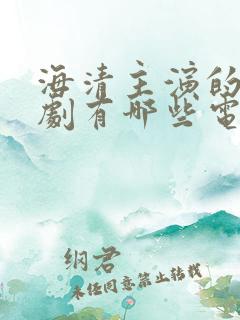 海清主演的
劇有哪些電
纲君
未经同意禁止转载